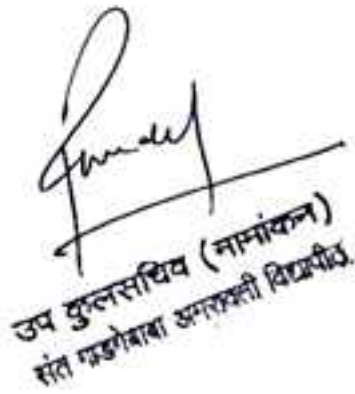 उप कुलसचिव (नामांकन)
संत गाडगेबाबा अमरावती विद्यापीठ.